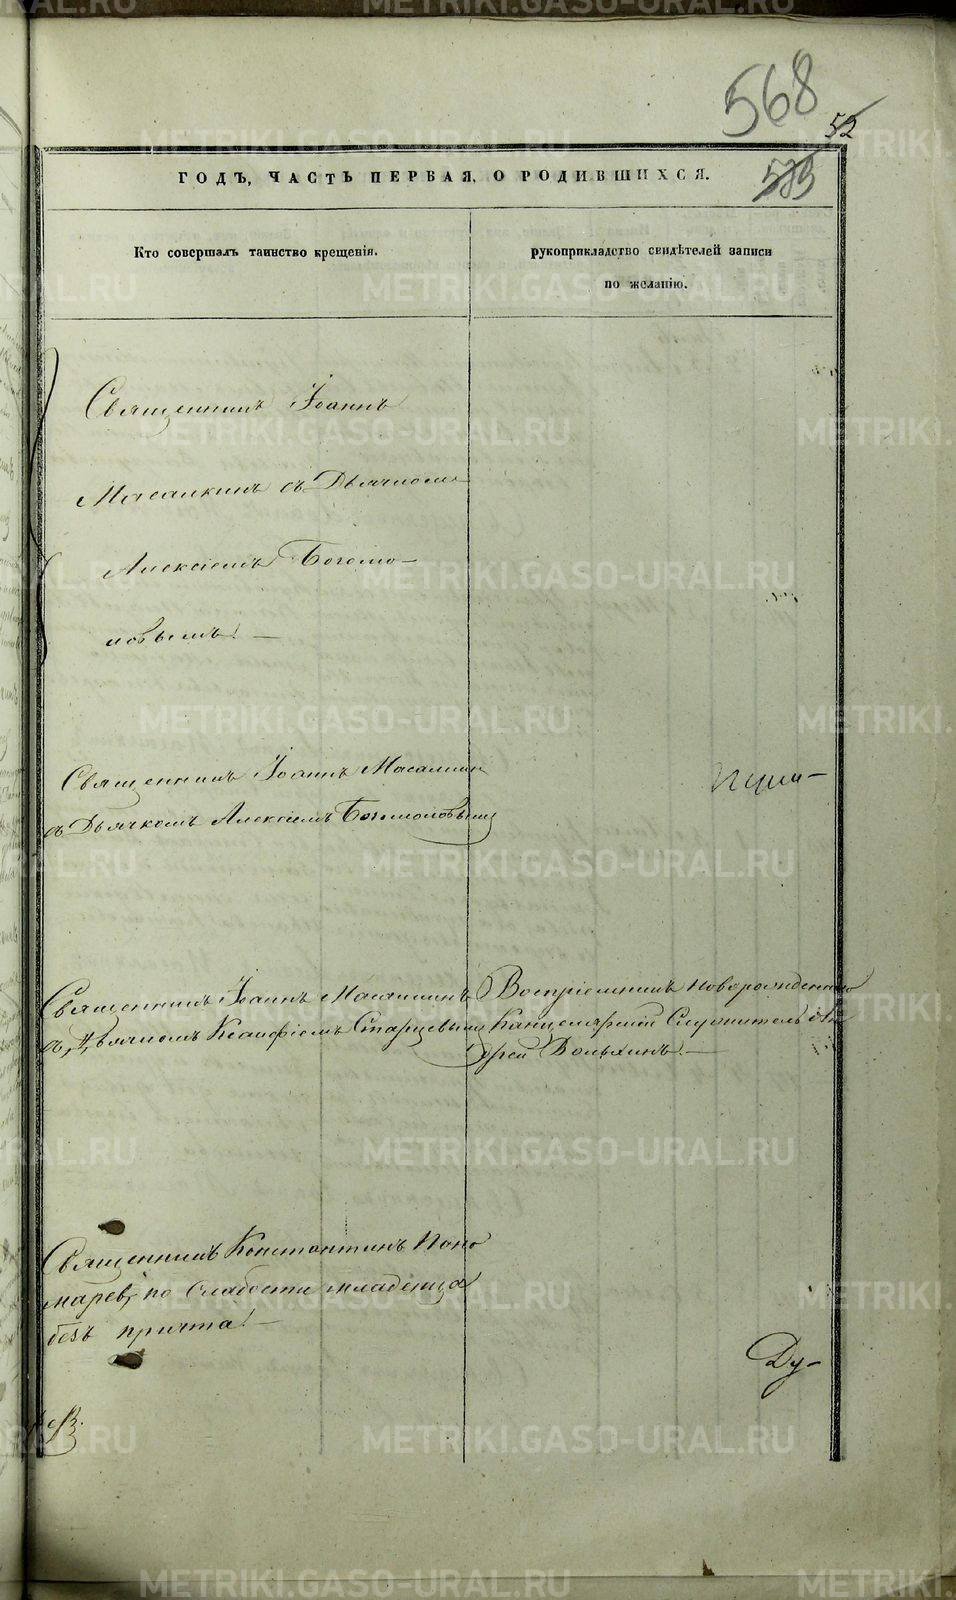 568
52
583
ГОДЪ, ЧАСТЬ ПЕРВАЯ, О РОДИВШИХСЯ.
Кто совершалъ таинство крещенія.
рукоприкладство свидѣтелей записи
по желанію.
Священникъ Іоаннъ
Масалкинъ съ Дьячкомъ
Алексіемъ Богомо-
ловымъ! —
Священникъ Іоаннъ Масалкин
съ Дьячкомъ Алексіемъ Богомоловымъ
Священникъ Іоаннъ Масалкинъ
съ Дьячкомъ Старцевымъ
Воспріемникъ новорожденнаго
Канцелярскій Служитель Ан
дрей Волыхинъ. —
Священникъ Константинъ Поно
маревъ, по слабости младенца
безъ причта! —
Ду-
METRIKI.GASO-URAL.RU